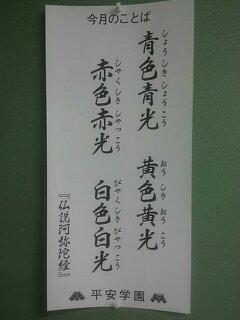 今月のことば
青色青光
しょうしきしょうこう
黄色黄光
おうしきおうこう
赤色赤光
しゃくしきしゃっこう
白色白光
びゃくしきびゃっこう
『仏説阿弥陀経』
平安学園